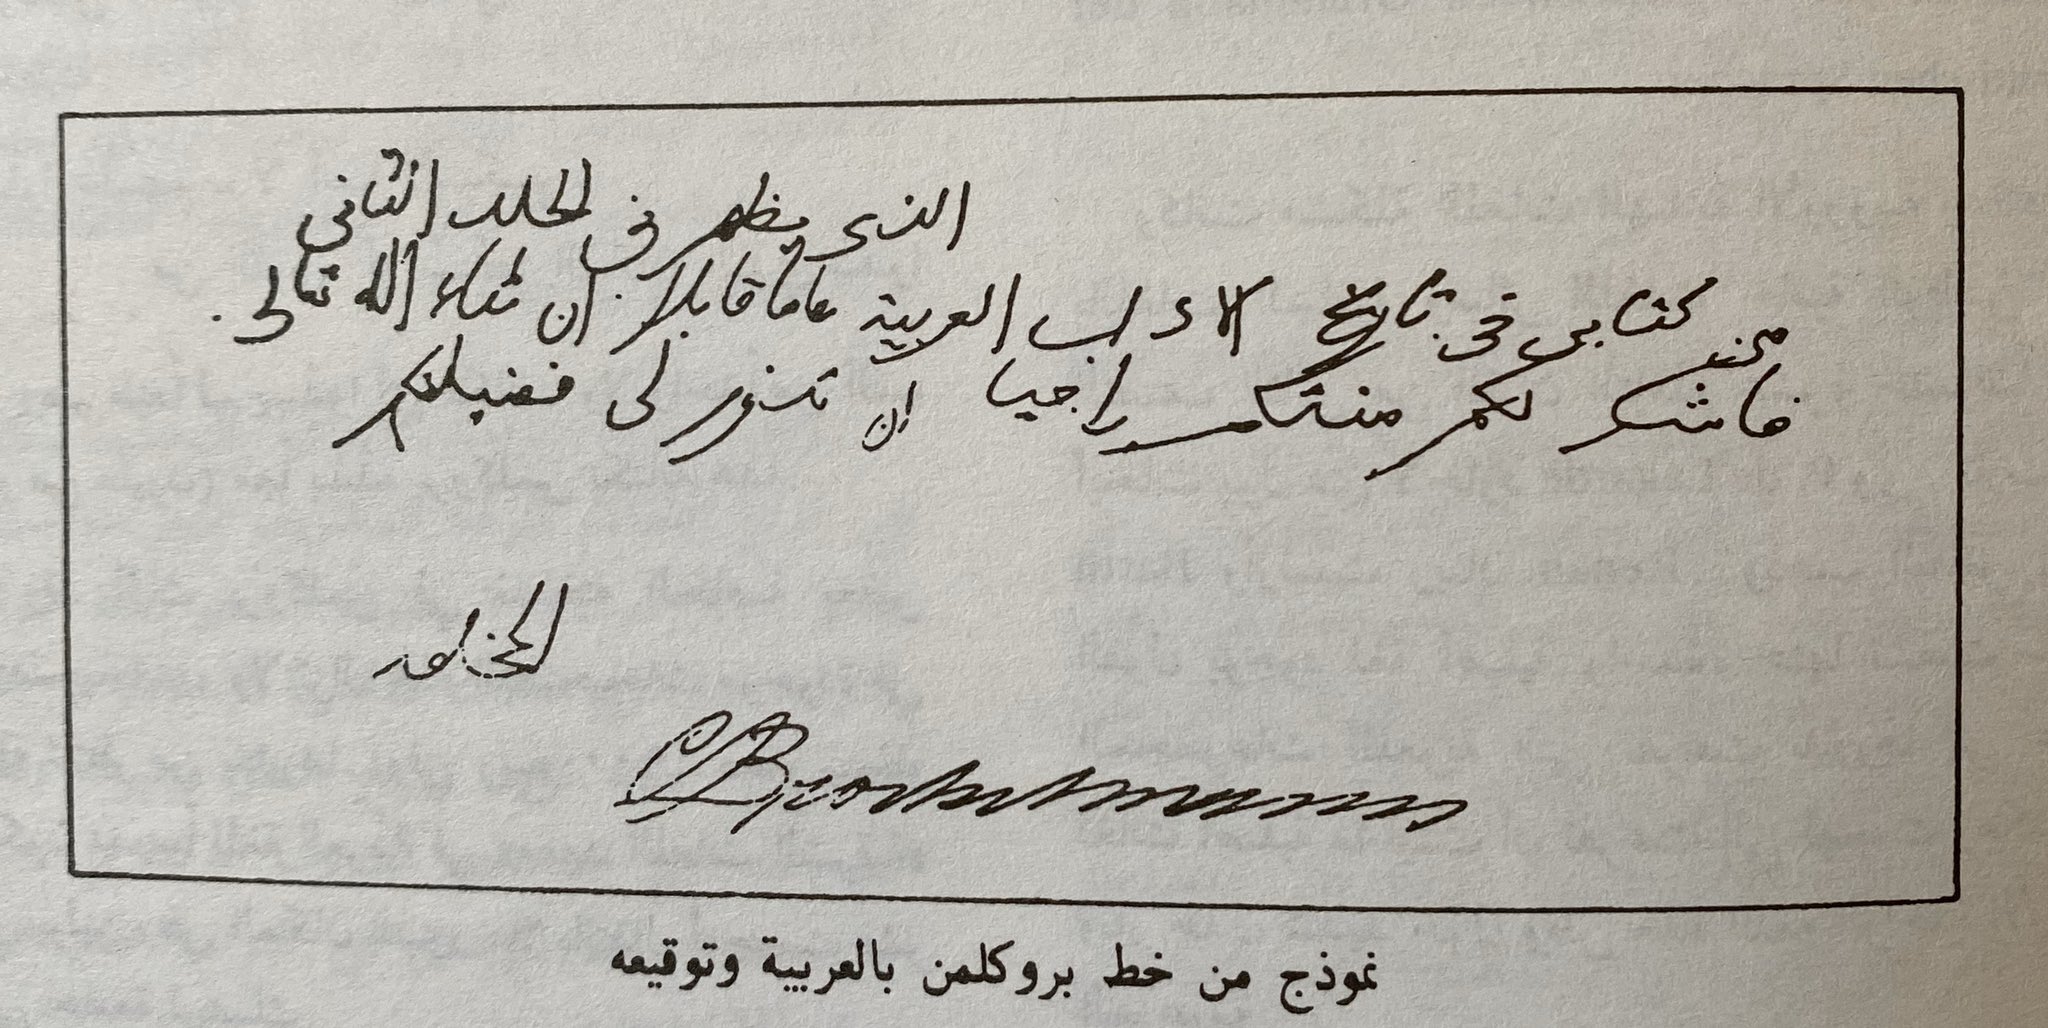 الذى يظهر فى المجلد الثانى
من كتابى فى تاريخ الاداب العربية عاما قابلا ان شاء الله تعالى.
فاشكر لكم منتكم راجيا ان تـ لى فضيلتكم
المخلص
CBrockelmann
نموذج من خط بروكلمن بالعربية وتوقيعه